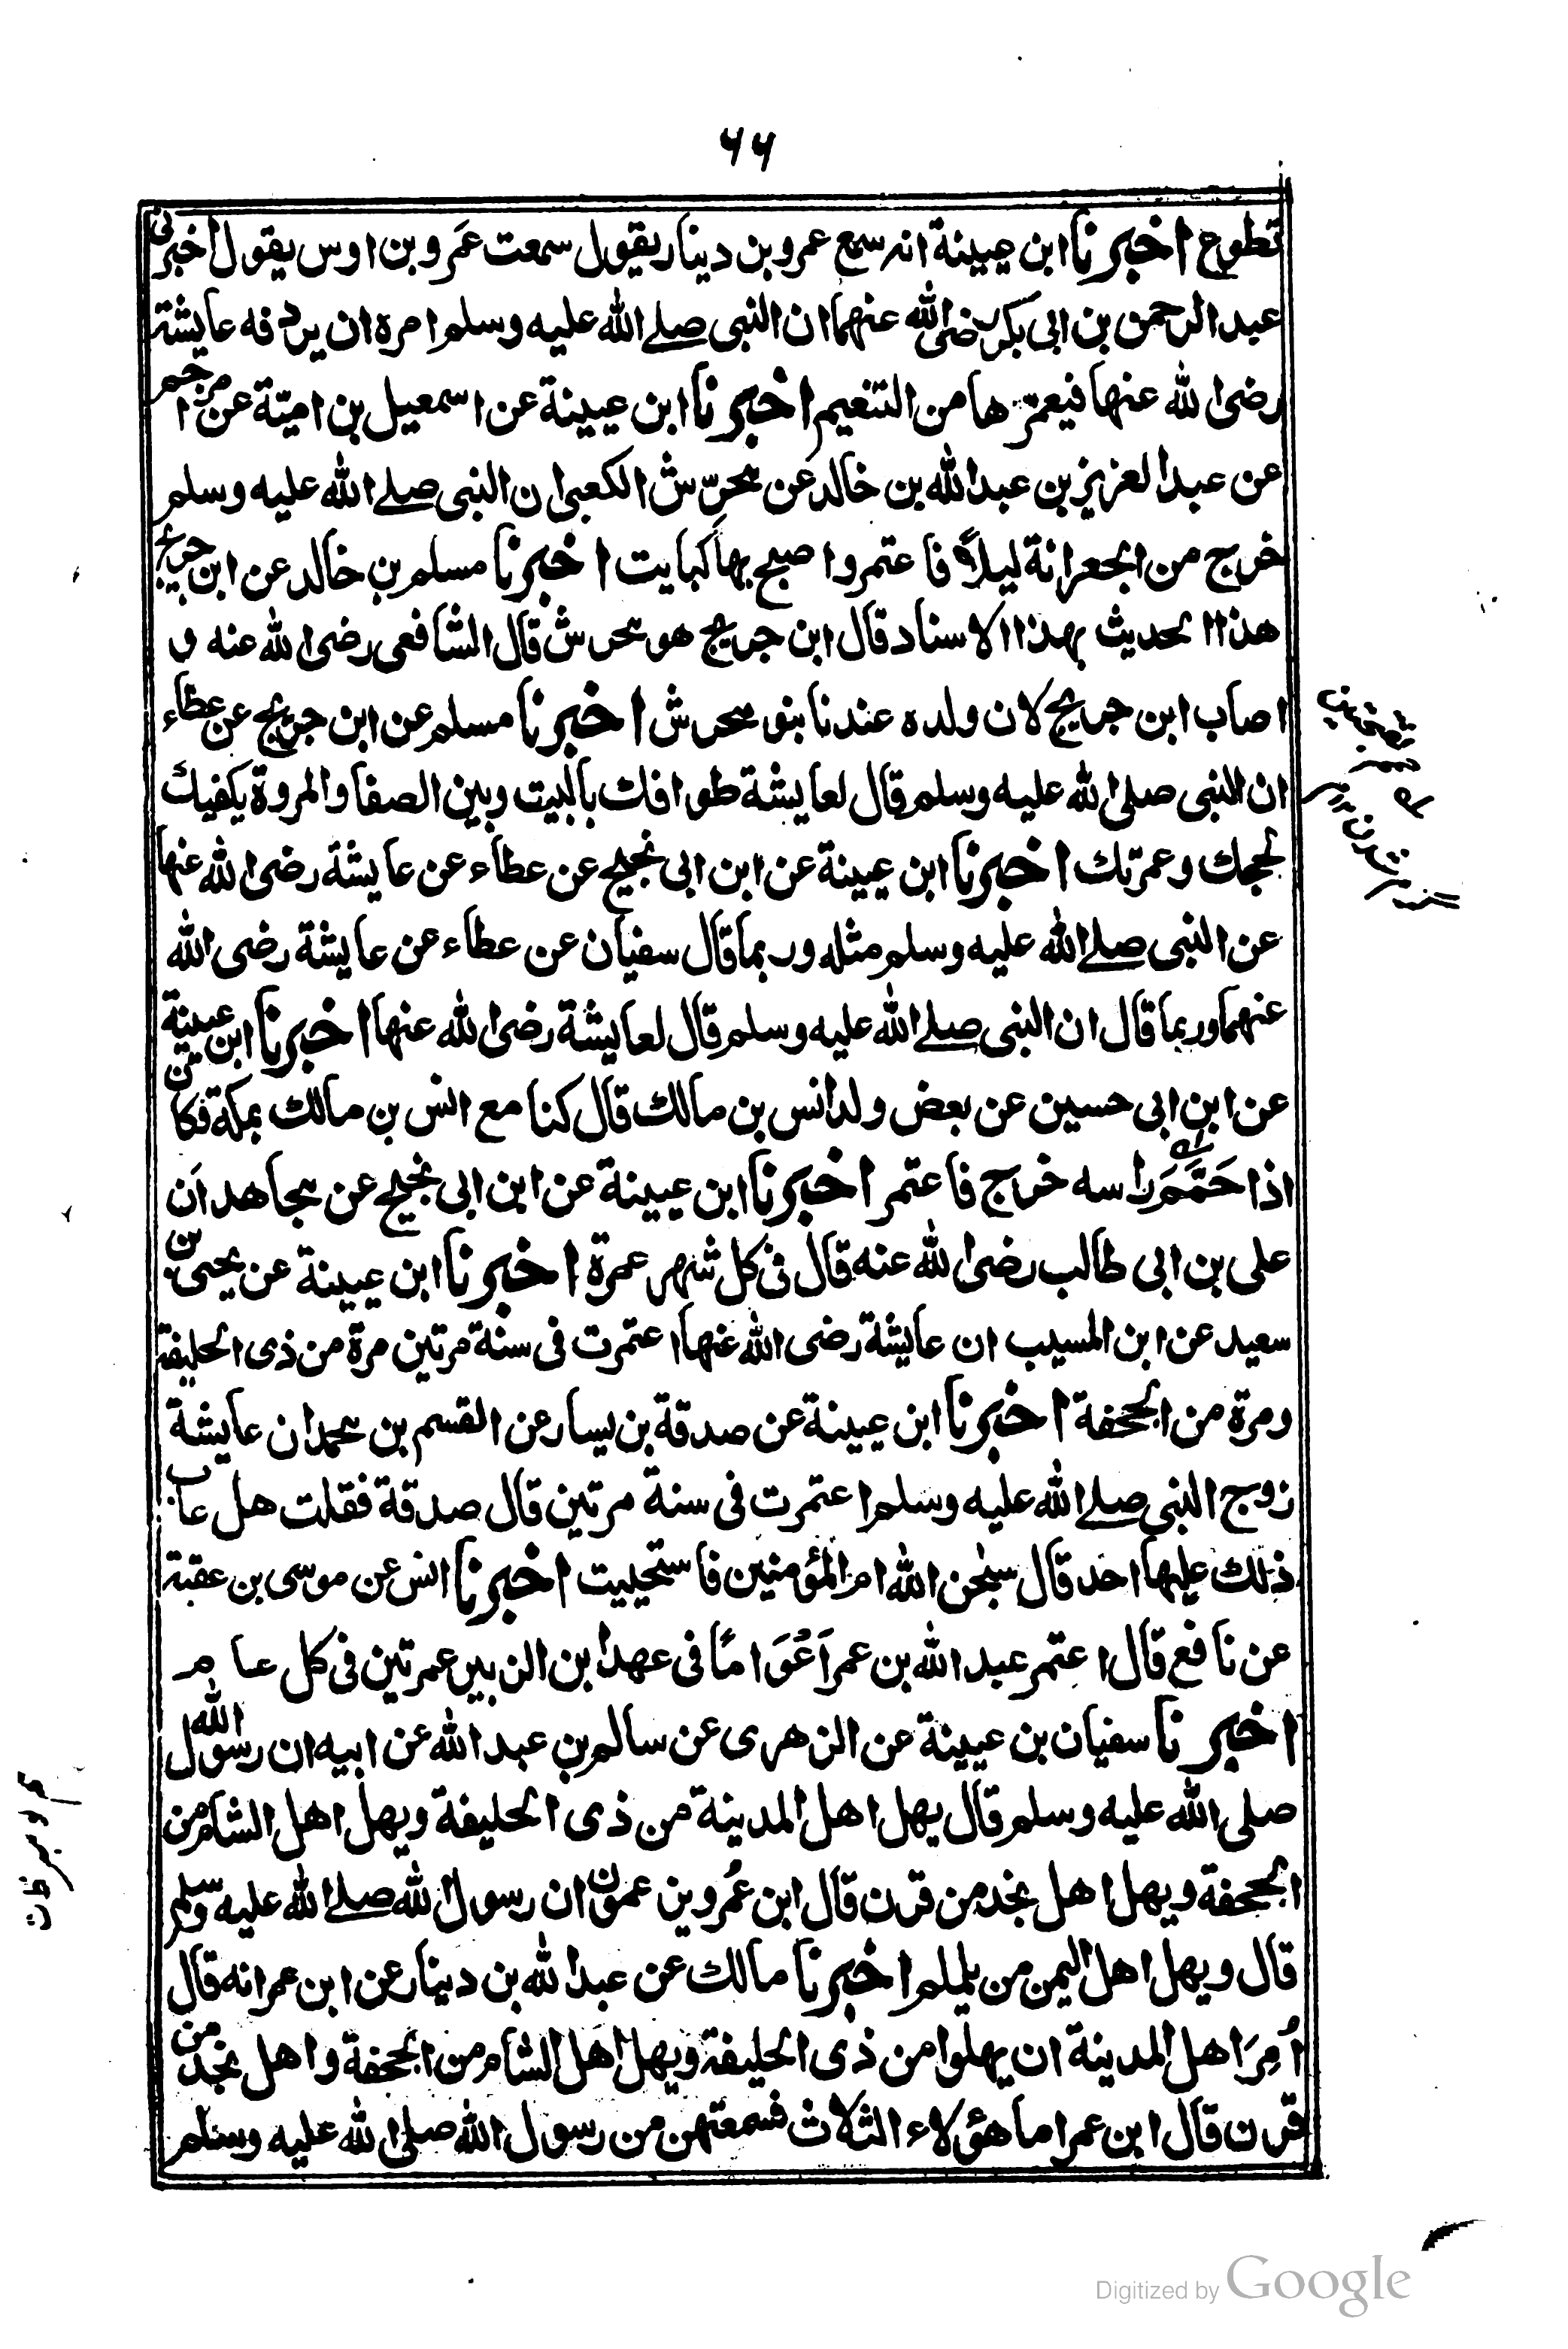 ٦٦
تطوع اخبرنا ابن عيينة انه سمع عمرو بن دينار يقول سمعت عَمرو بن اوس يقول اخبرنى
عبد الرحمن بن ابى بكر رضى الله عنهما ان النبى صلے الله عليه وسلم امره ان يردفه عايشة
رضى الله عنها فيعمّرها من التنعيم اخبرنا ابن عيينة عن اسمعيل بن اميّة عن مزاحم
عن عبد العزيز بن عبد الله بن خالد عن محرّش الكعبى ان النبى صلے الله عليه وسلم
خرج من الجعرانة ليلاً فاعتمر واصبح بها كبايت اخبرنا مسلم بن خالد عن ابن جريج
هذا الحديث بهذا الاسناد قال ابن جريج هو محرش قال الشافعى رضى الله عنه و
اصاب ابن جريج لان ولده عندنا بنو محرش اخبرنا مسلم عن ابن جريج عن عطاء
ان النبى صلى الله عليه وسلم قال لعايشة طوافك بالبيت وبين الصفا والمروة يكفيك
لحجك وعمرتك اخبرنا ابن عيينة عن ابن ابى نجيح عن عطاء عن عايشة رضى الله عنها
عن النبى صلے الله عليه وسلم مثله وربما قال سفيان عن عطاء عن عايشة رضى الله
عنهما وربما قال ان النبى صلے الله عليه وسلم قال لعايشة رضى الله عنها اخبرنا ابن عيينة
عن ابن ابى حسين عن بعض ولد انس بن مالك قال كنا مع انس بن مالك بمكة فكان
اذا حَمَّمَ راسه خرج فاعتمر اخبرنا ابن عيينة عن ابن ابى نجيح عن مجاهد اَن
على بن ابى طالب رضى الله عنه قال فى كل شهر عمرة اخبرنا ابن عيينة عن يحيى بن
سعيد عن ابن المسيب ان عايشة رضى الله عنها اعتمرت فى سنة مرتين مرة من ذى الحليفة
ومرة من الجحفة اخبرنا ابن عيينة عن صدقة بن يسار عن القسم بن محمد ان عايشة
زوج النبى صلے الله عليه وسلم اعتمرت فى سنة مرتين قال صدقة فقلت هل عاب
ذلك عليها احد قال سبحن الله ام المؤمنين فاستحييت اخبرنا انس عن موسى بن عقبة
عن نافع قال اعتمر عبد الله بن عمر اَعْوَامًا فى عهد ابن الزبير عمرتين فى كل عام
اخبرنا سفيان بن عيينة عن الزهرى عن سالم بن عبد الله عن ابيه ان رسول الله
صلى الله عليه وسلم قال يهل اهل المدينة من ذى الحليفة ويهل اهل الشام من
الجحفة ويهل اهل نجد من قرن قال ابن عُمر ويزعمون ان رسول الله صلے الله عليه وسلم
قال ويهل اهل اليمن من يلملم اخبرنا مالك عن عبد الله بن دينار عن ابن عمر انه قال
اُمِرَ اهل المدينة ان يهلوا من ذى الحليفة ويهل اهل الشام من الجحفة واهل نجد من
قرن قال ابن عمر اما هؤلاء الثلاث فسمعتهن من رسول الله صلى الله عليه وسلم
Digitized by Google